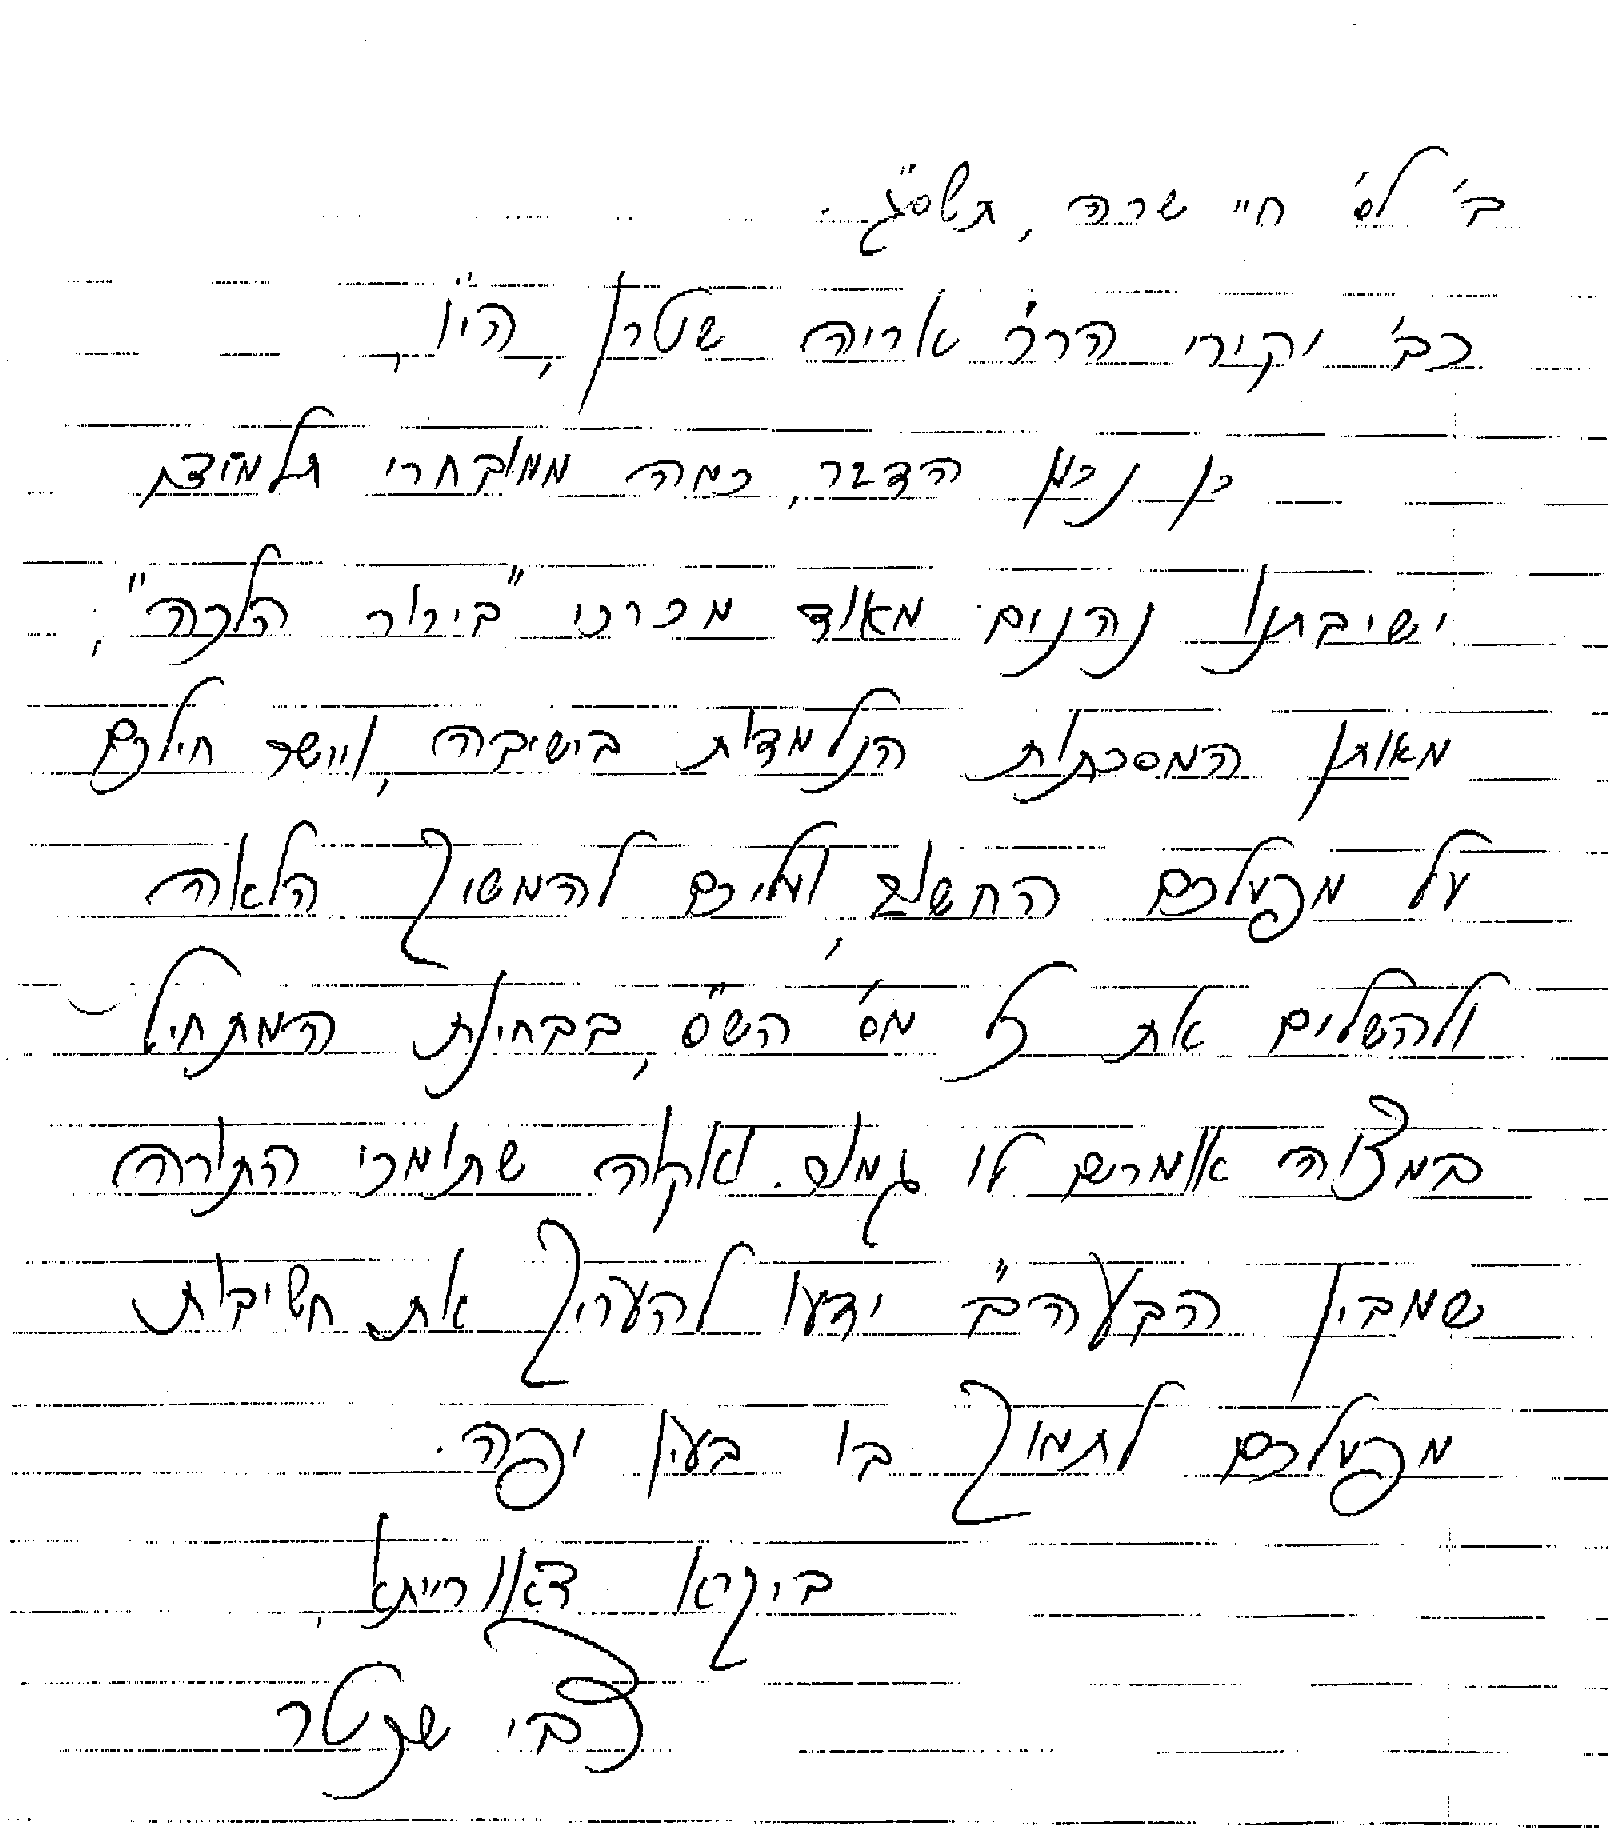 ב' לס' חיי שרה, תשס"ג.
כב' יקירי הרר' אריה שטרן, הי"ו,
כן נכון הדבר, כמה ממובחרי תלמידי
ישיבתנו נהנים מאוד מכרכי "בירור הלכה",
מאותן המסכתות הנלמדות בישיבה, ויישר חילכם
על מפעלכם החשוב, ועליכם להמשיך הלאה
ולהשלים את כל מס' הש"ס, בבחינת המתחיל
במצוה אומרים לו גמור. ואקוה שתומכי התורה
שמבין הבעה"ב ידעו להעריך את חשיבות
מפעלכם לתמוך בו בעין יפה.
ביקרא דאורייתא,
צבי שכטר